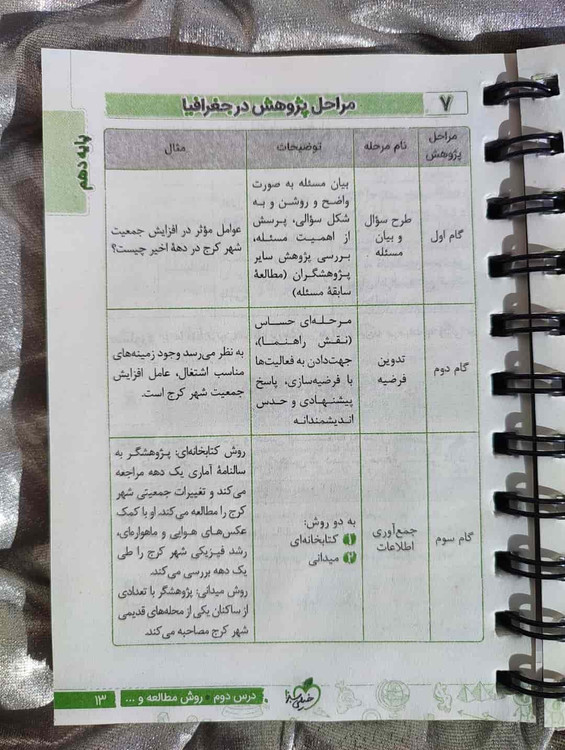 ۷
مراحل پژوهش در جغرافیا
پایه دهم
مراحل پژوهش
نام مرحله
توضیحات
مثال
گام اول
طرح سؤال
و بیان
مسئله
بیان مسئله به صورت
واضح و روشن و به
شکل سؤالی، پرسش
از اهمیت مسئله،
بررسی پژوهش سایر
پژوهشگران (مطالعهٔ
سابقهٔ مسئله)
عوامل مؤثر در افزایش جمعیت
شهر کرج در دههٔ اخیر چیست؟
گام دوم
تدوین
فرضیه
مرحله‌ای حساس
(نقش راهنما)،
جهت‌دادن به فعالیت‌ها
با فرضیه‌سازی، پاسخ
پیشنهادی و حدس
اندیشمندانه
به نظر می‌رسد وجود زمینه‌های
مناسب اشتغال، عامل افزایش
جمعیت شهر کرج است.
گام سوم
جمع‌آوری
اطلاعات
به دو روش:
۱ کتابخانه‌ای
۲ میدانی
روش کتابخانه‌ای: پژوهشگر به
سالنامهٔ آماری یک دهه مراجعه
می‌کند و تغییرات جمعیتی شهر
کرج را مطالعه می‌کند. او با کمک
عکس‌های هوایی و ماهواره‌ای،
رشد فیزیکی شهر کرج را طی
یک دهه بررسی می‌کند.
روش میدانی: پژوهشگر با تعدادی
از ساکنان یکی از محله‌های قدیمی
شهر کرج مصاحبه می‌کند.
خیلی سبز
درس دوم • روش مطالعه و ...
۱۳